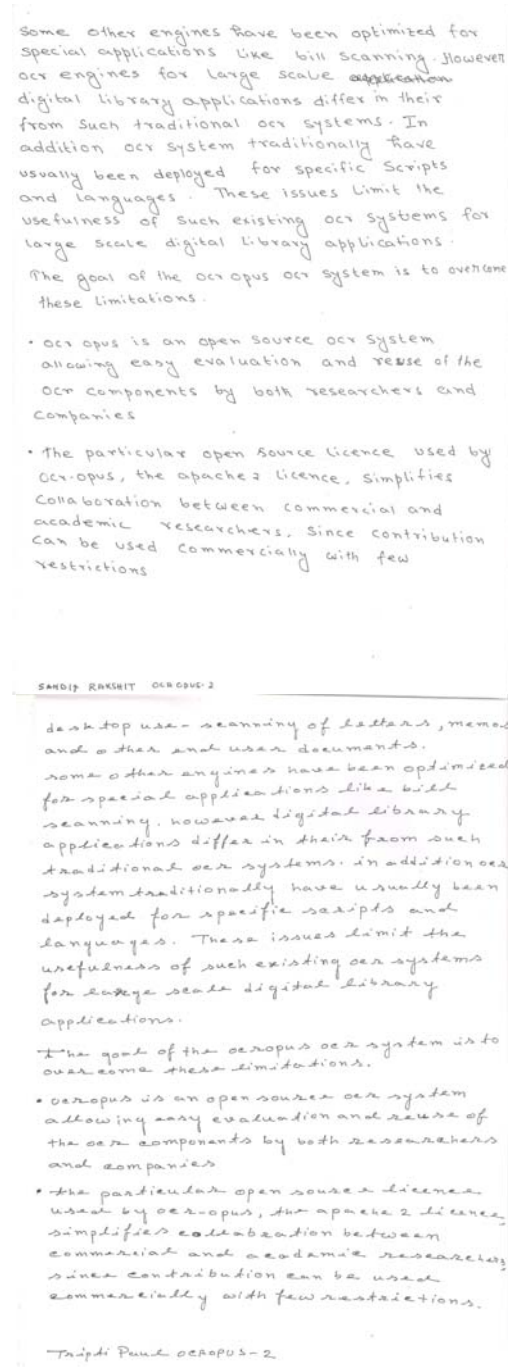 some other engines have been optimized for
special applications like bill scanning. However
ocr engines for large scale application
digital library applications differ in their
from such traditional ocr systems. In
addition ocr system traditionally have
usually been deployed for specific scripts
and languages. These issues limit the
usefulness of such existing ocr systems for
large scale digital library applications.
The goal of the ocr opus ocr system is to overcome
these limitations.
• ocr opus is an open source ocr system
allowing easy evaluation and reuse of the
ocr components by both researchers and
companies
• The particular open source licence used by
ocr-opus, the apache 2 licence, simplifies
collaboration between commercial and
academic researchers, since contribution
can be used commercially with few
restrictions
SANDIP RAKSHIT OCROPUS-2
desktop use - scanning of letters, memos
and other end user documents.
some other engines have been optimized
for special applications like bill
scanning. however digital library
applications differ in their from such
traditional ocr systems. in addition ocr
system traditionally have usually been
deployed for specific scripts and
languages. These issues limit the
usefulness of such existing ocr systems
for large scale digital library
applications.
The goal of the ocropus ocr system is to
overcome these limitations.
• ocropus is an open source ocr system
allowing easy evaluation and reuse of
the ocr components by both researchers
and companies
• the particular open source licence
used by ocr-opus, the apache 2 licence,
simplifies collabration between
commercial and academic researchers,
since contribution can be used
commercially with few restrictions.
Tripti Paul OCROPUS-2